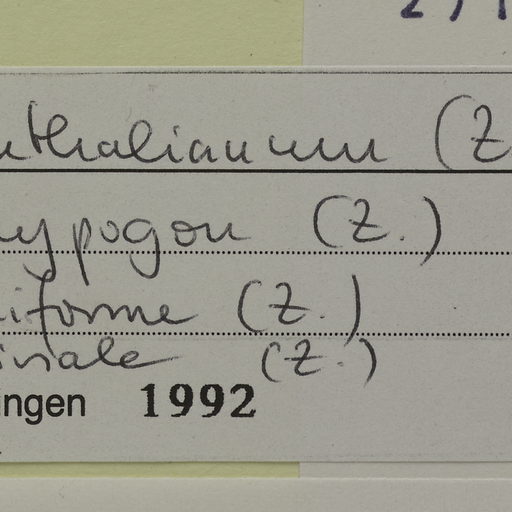 uthalianum (Z
ypogon (Z.)
iforme (Z.)
ivale (Z.)
ingen 1992